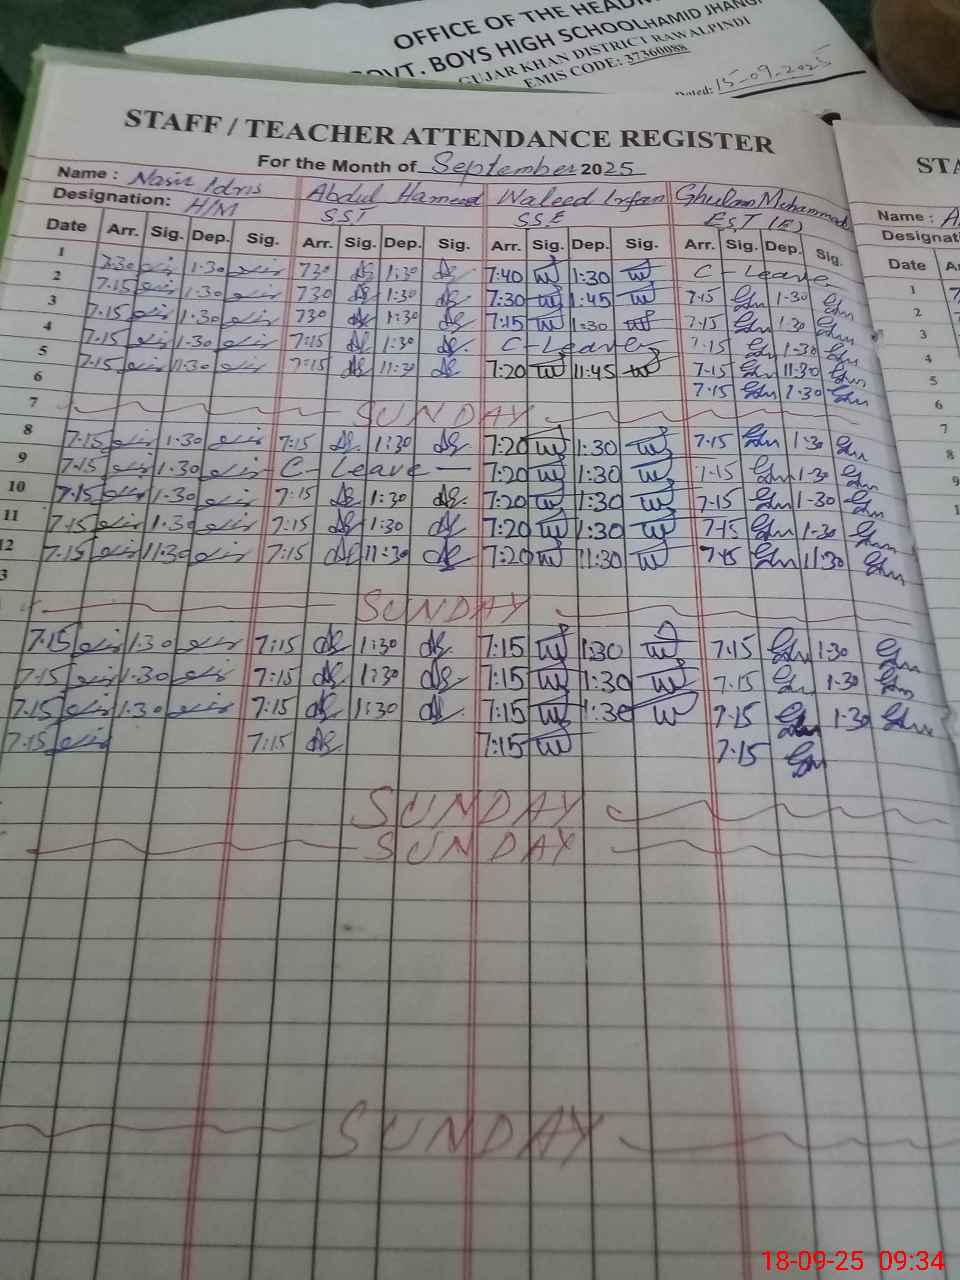 OFFICE OF THE HEADM
GOVT. BOYS HIGH SCHOOL HAMID JHANGI
GUJAR KHAN DISTRICT RAWALPINDI
EMIS CODE: 37360088
Dated: 15-09-2025
STAFF / TEACHER ATTENDANCE REGISTER
For the Month of September 2025
Name : Nasir Idris Abdul Hameed Waleed Irfan Ghulam Muhammad
Designation: H/M SST SSE EST (E)
Date Arr. Sig. Dep. Sig. Arr. Sig. Dep. Sig. Arr. Sig. Dep. Sig. Arr. Sig. Dep. Sig.
1 7:30 1:30 730 1:30 7:40 1:30 C-Leave
2 7:15 1:30 730 1:30 7:30 1:45 7:15 1-30
3 7:15 1:30 730 1:30 7:15 1:30 7:15 1:30
4 7:15 1:30 7:15 1:30 C-Leave 7:15 1-30
5 7:15 11:30 7:15 11:30 7:20 11:45 7-15 11:30
6 7:15 1:30
7 SUNDAY
8 7:15 1:30 7:15 1:30 7:20 1:30 7:15 1:30
9 7:15 1:30 C-Leave 7:20 1:30 7:15 1-30
10 7:15 1:30 7:15 1:30 7:20 1:30 7-15 1-30
11 7:15 1:30 7:15 1:30 7:20 1:30 7:15 1-30
12 7:15 11:30 7:15 11:30 7:20 11:30 7:15 11:30
3
SUNDAY
7:15 1:30 7:15 1:30 7:15 1:30 7:15 1:30
7:15 1:30 7:15 1:30 7:15 1:30 7:15 1:30
7:15 1:30 7:15 1:30 7:15 1:30 7:15 1:30
7:15 7:15 7:15 7:15
SUNDAY
SUNDAY
SUNDAY
STA
Name : A
Designati
Date A
1
2
3
4
5
6
7
8
9
1
18-09-25 09:34